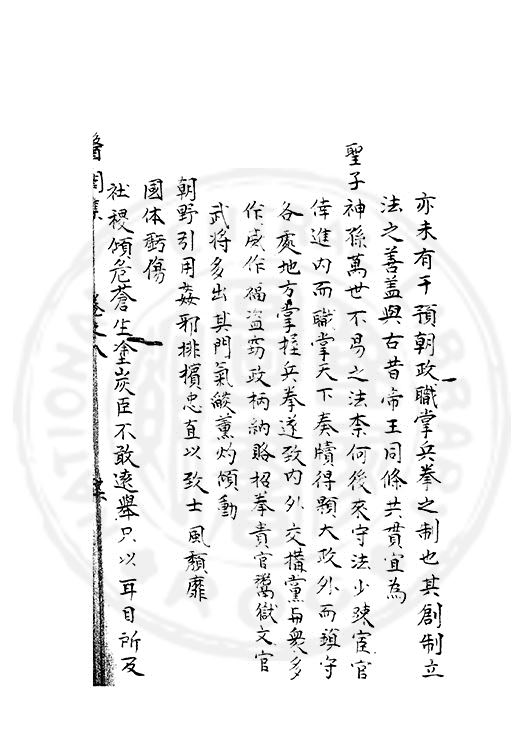 亦未有干預朝政職掌兵拳之制也其創制立
法之善盖與古昔帝王同條共貫宜為
聖子神孫萬世不易之法柰何後來守法少踈宦官
倖進内而職掌天下奏牘得顓大政外而鎮守
各處地方掌握兵拳遂致内外交搆黨与衆多
作威作福盗窃政柄納賂招拳責官鬻獄文官
武将多出其門氣䧟薰灼傾動
朝野引用姦邪排擯忠直以致士風頹靡
國体虧傷
社稷傾危蒼生塗炭臣不敢遠舉只以耳目所及
醫閭集